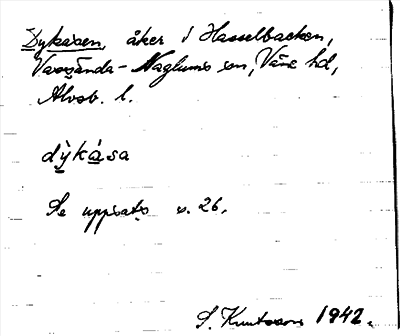 Dykåsen, åker i Hasselbacken,
Vassända-Naglums sn, Väne hd,
Älvsb. l.
dỳkása
Se uppsats s. 26.
S. Knutsson 1942.